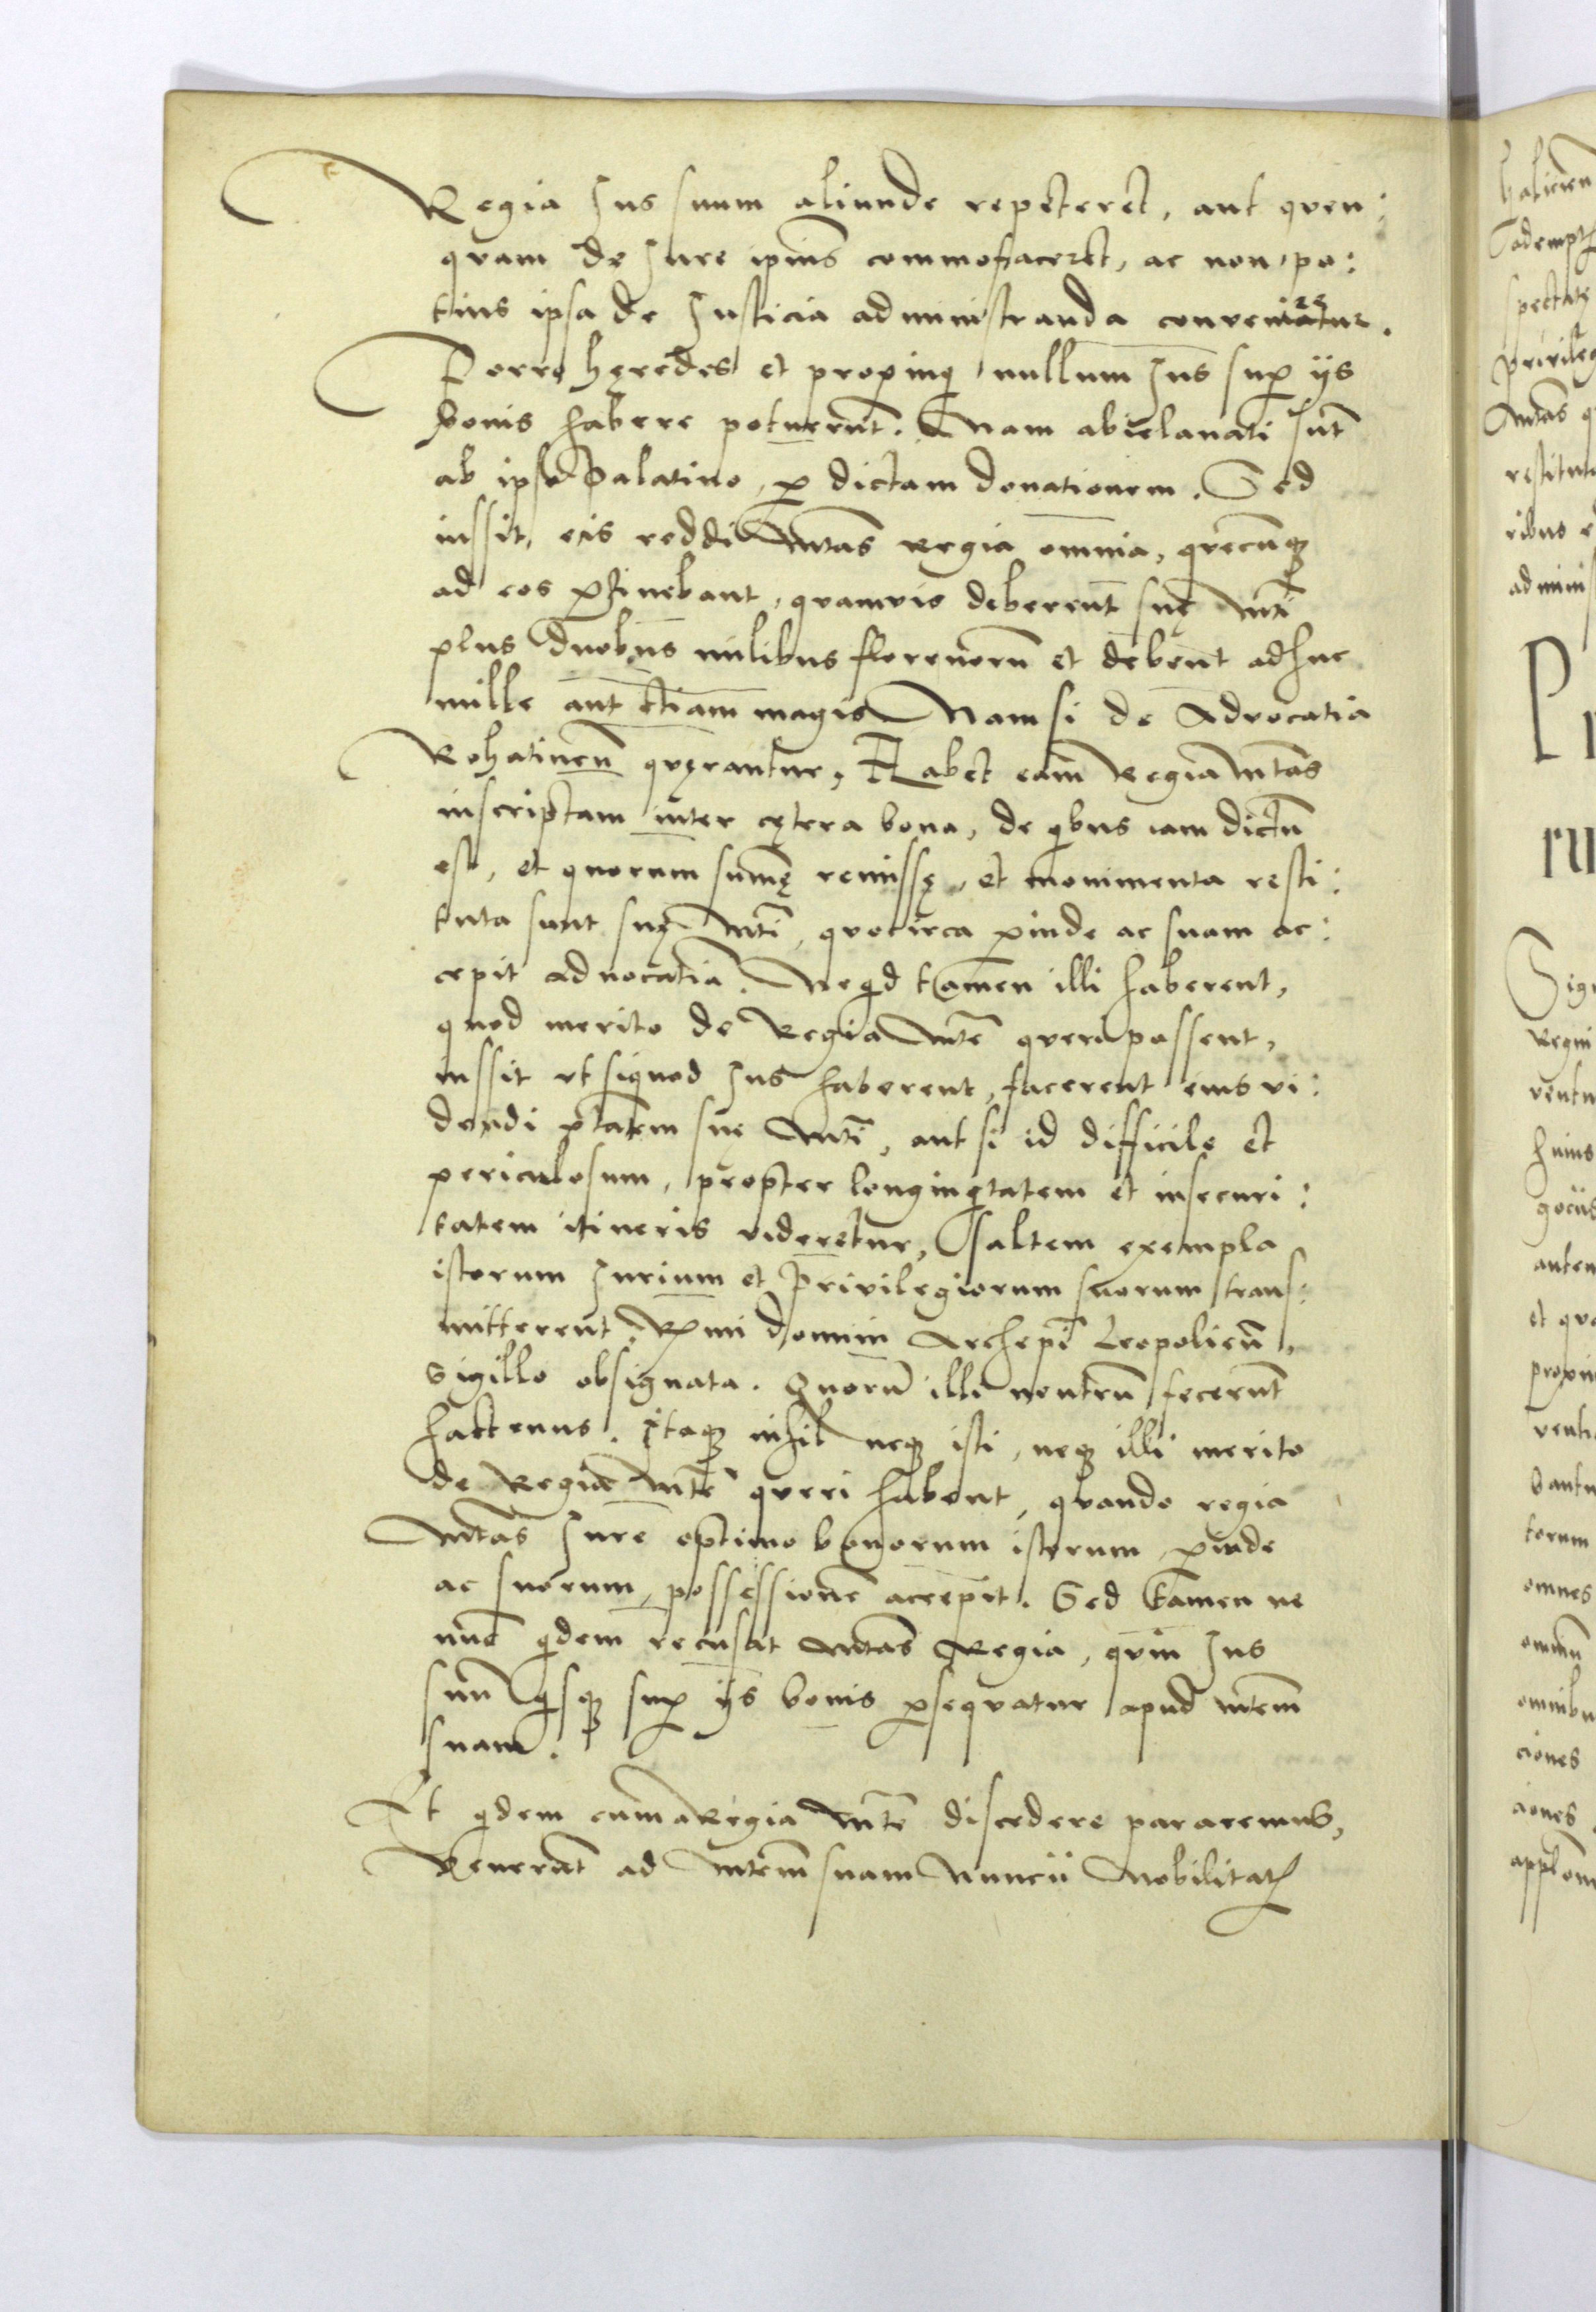 Regia Jus suum aliunde repeteret, aut quen:
quam de Jure ipius commofaceret, ac non po:
tius ipsa de Justicia administranda conveniretur.
Porro hęredes et propinq nullum Jus sup ijs
bonis habere potuerūt. Nam abielanati sūt
ab ipso Palatino, p dictam donationem. Sed
iussit, eis reddi Mtas regia omnia, quecūq
ad eos ptinebant, quamvis deberent suę Mti
plus duobus milibus florenorū et debent adhuc
mille aut etiam magis Nam si de Advocatia
Rohatineñ quęrantur, Habet eam Regia Mtas
inscriptam inter cętera bona, de qbus iam dictū
est, et quorum sumę remissę, et monimenta resti:
tuta sunt suę Mti, quocirca pinde ac suam ac:
cepit advocatiā. Neqd tamen illi haberent,
quod merito de Regia Mte queri possent,
iussit ut siquod Jus haberent, facerent eius vi:
dendi ptatem suę Mti, aut si id difficile et
periculosum, propter longinqtatem et insecuri:
tatem itineris videretur, Saltem exempla
istorum Jurium et Privilegiorum suorum trans:
mitterent, Rmi domini Archepi Leopolieñ,
Sigillo obsignata. Quorū illi neutrū fecerūt
hactenus. Itaq nihil neq isti, neq illi merito
de Regia Mte queri habent, quando regia
Mtas Jure optimo bonorum istorum pinde
ac suorum, possessionē accepit. Sed tamen ne
nūc qdem recusat Mtas Regia, quin Jus
suū qsq sup ijs bonis psequatur apud Mtem
suam.
Et qdem cum a Regia Mte discedere pararemus,
Venerūt ad Mtem suam Nuncii Nobilitatis